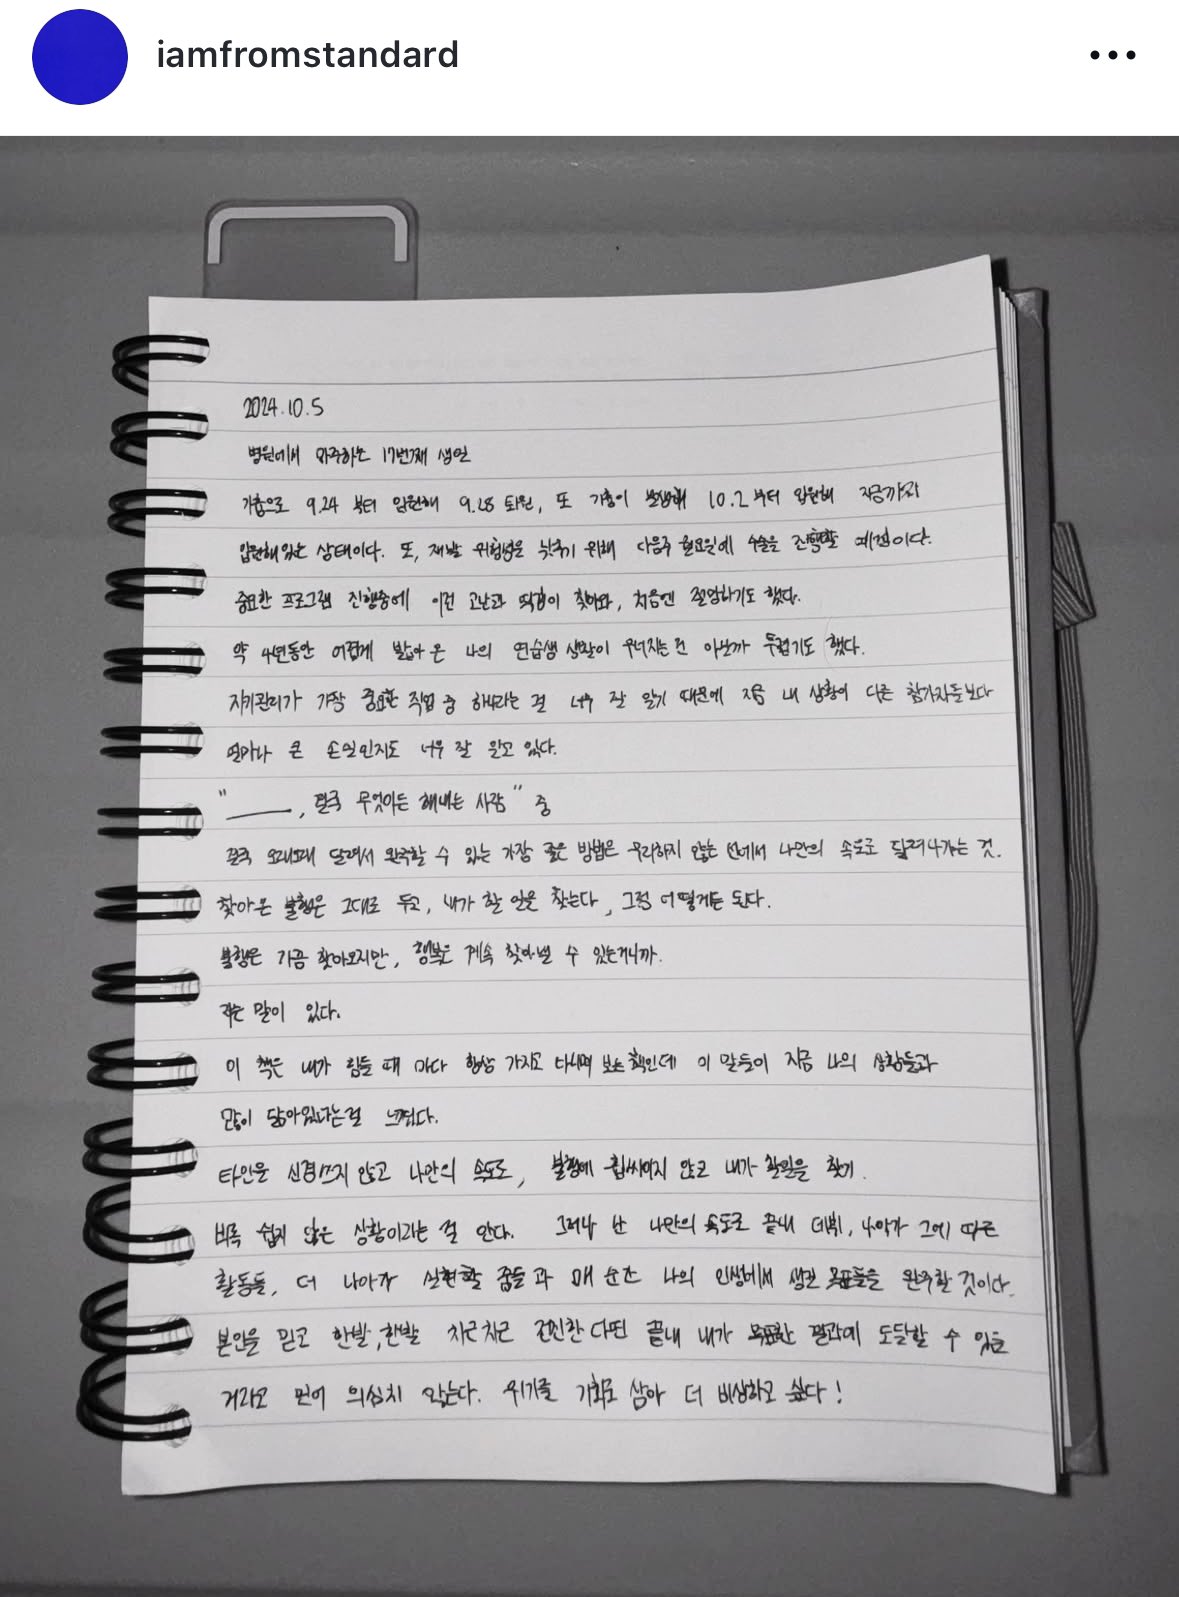 iamfromstandard
2024.10.5
병원에서 마주하는 17번째 생일
기흉으로 9.24 부터 입원해 9.28 퇴원, 또 기흉이 발생해 10.2 부터 입원해 지금까지
입원해있는 상태이다. 또, 재발 위험성을 낮추기 위해 다음주 월요일에 수술을 진행할 예정이다.
중요한 프로그램 진행중에 이런 고난과 역경이 찾아와, 처음엔 절망하기도 했다.
약 4년동안 어렵게 밟아온 나의 연습생 생활이 무너지는건 아닌까 두렵기도 했다.
자기관리가 가장 중요한 직업 중 하나라는 걸 너무 잘 알기 때문에 지금 내 상황이 다른 참가자들보다
얼마나 큰 손실인지도 너무 잘 알고 있다.
" , 결국 무엇이든 해내는 사람" 중
결국 오래오래 달려서 완주할 수 있는 가장 좋은 방법은 무리하지 않는 선에서 나만의 속도로 달려나가는 것.
찾아온 불행은 그대로 두고, 내가 할 일을 찾는다, 그럼 어떻게든 된다.
불행은 가끔 찾아오지만, 행복은 계속 찾아낼 수 있는거니까.
라는 말이 있다.
이 책은 내가 힘들 때 마다 항상 가지고 다니며 보는 책인데 이 말들이 지금 나의 상황들과
많이 닮아있다는걸 느꼈다.
타인을 신경쓰지 않고 나만의 속도로, 불행에 휩싸이지 않고 내가 할일을 찾기.
비록 쉽지 않은 상황이라는 걸 안다. 그러나 난 나만의 속도로 끝내 데뷔, 나아가 그에 따른
활동들, 더 나아가 실현할 꿈들과 매 순간 나의 인생에서 생긴 목표들을 완주할 것이다.
본인을 믿고 한발, 한발 차근차근 전진한다면 끝내 내가 목표한 결과에 도달할 수 있을
거라고 믿어 의심치 않는다. 위기를 기회로 삼아 더 비상하고 싶다!